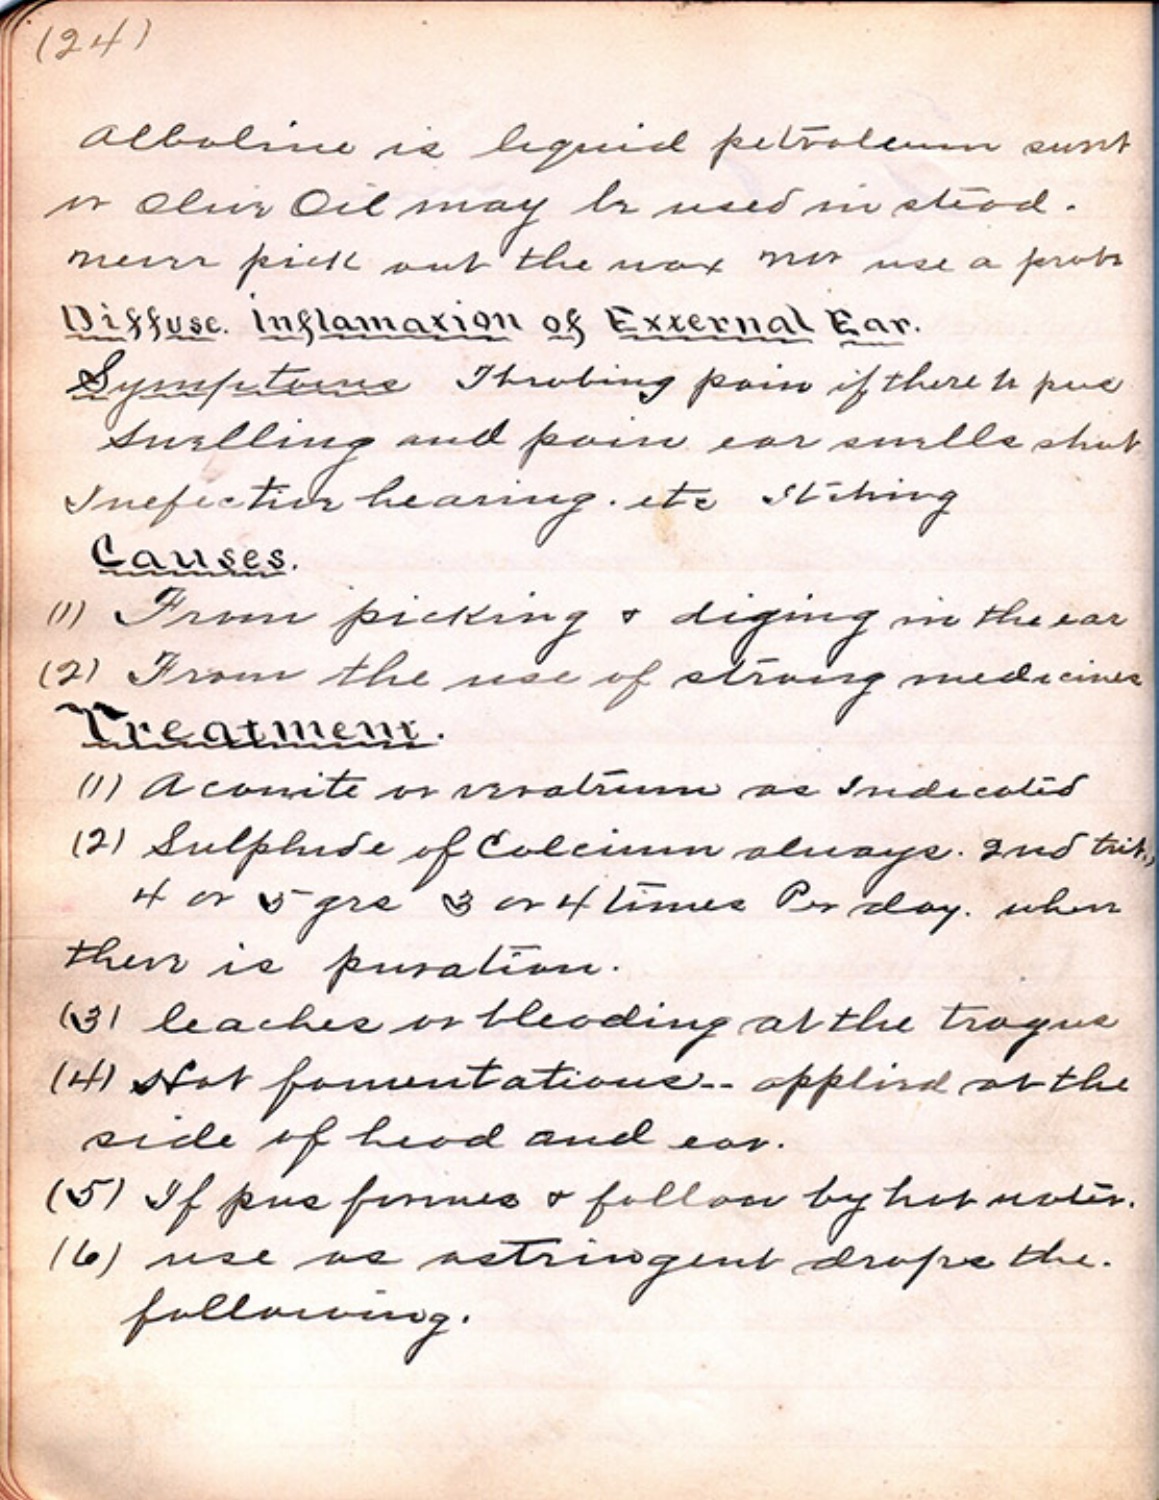 (24)
Alboline is liquid petroleum sweet
or Olive Oil may be used in stead.
never pick out the wax nor use a probe
Diffuse. Inflamation of External Ear.
Symptoms Throbing pain if there is pus
Swelling and pain ear swells shut
Inefective hearing. etc Itching
Causes.
(1) From picking & diging in the ear
(2) From the use of strong medicines
Treatment.
(1) Aconite or veratrum as Indicated
(2) Sulphide of Calcium always. 2nd trit.,
4 or 5 grs 3 or 4 times Per day. when
there is puration.
(3) leaches or bleading at the tragus
(4) Hot fomentations-- applied at the
side of head and ear.
(5) If pus formes & follow by hot water.
(6) use as astringent drops the.
following.